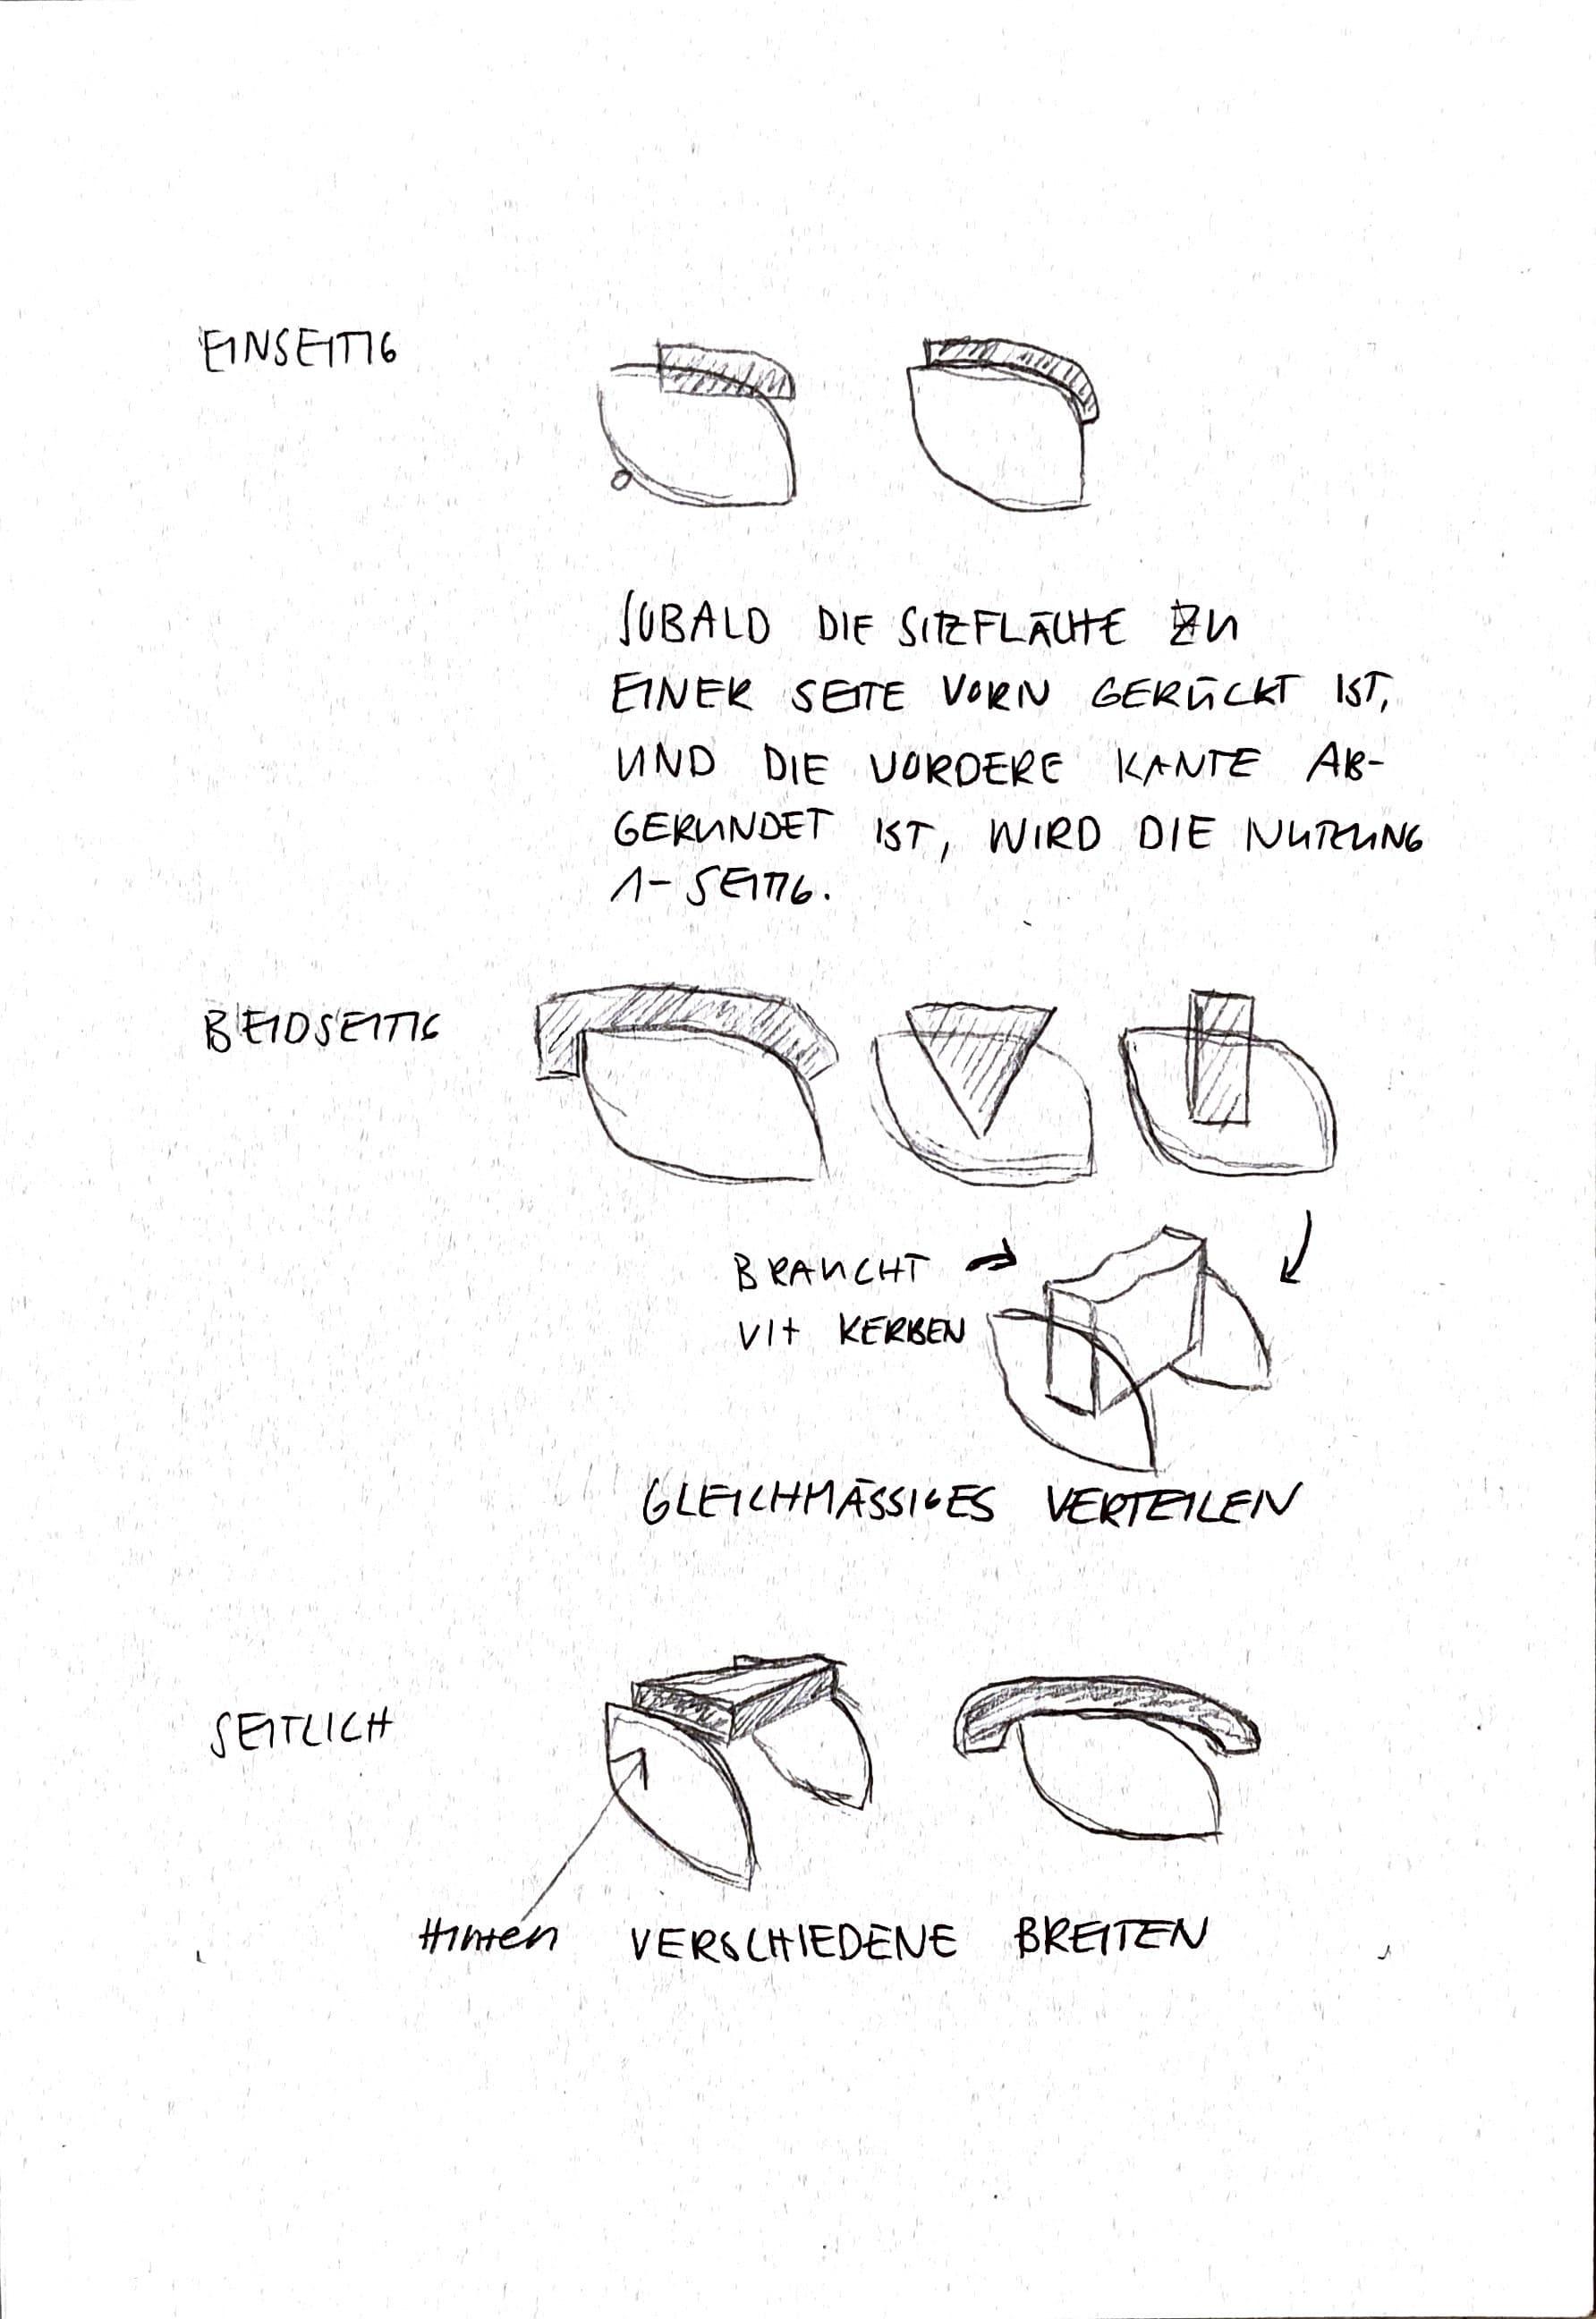 EINSEITIG
SOBALD DIE SITZFLÄCHE ZU
EINER SEITE VORN GERÜCKT IST,
UND DIE VORDERE KANTE AB-
GERUNDET IST, WIRD DIE NUTZUNG
1-SEITIG.
BEIDSEITIG
BRAUCHT
VIT KERBEN
GLEICHMÄSSIGES VERTEILEN
SEITLICH
Hinten VERSCHIEDENE BREITEN